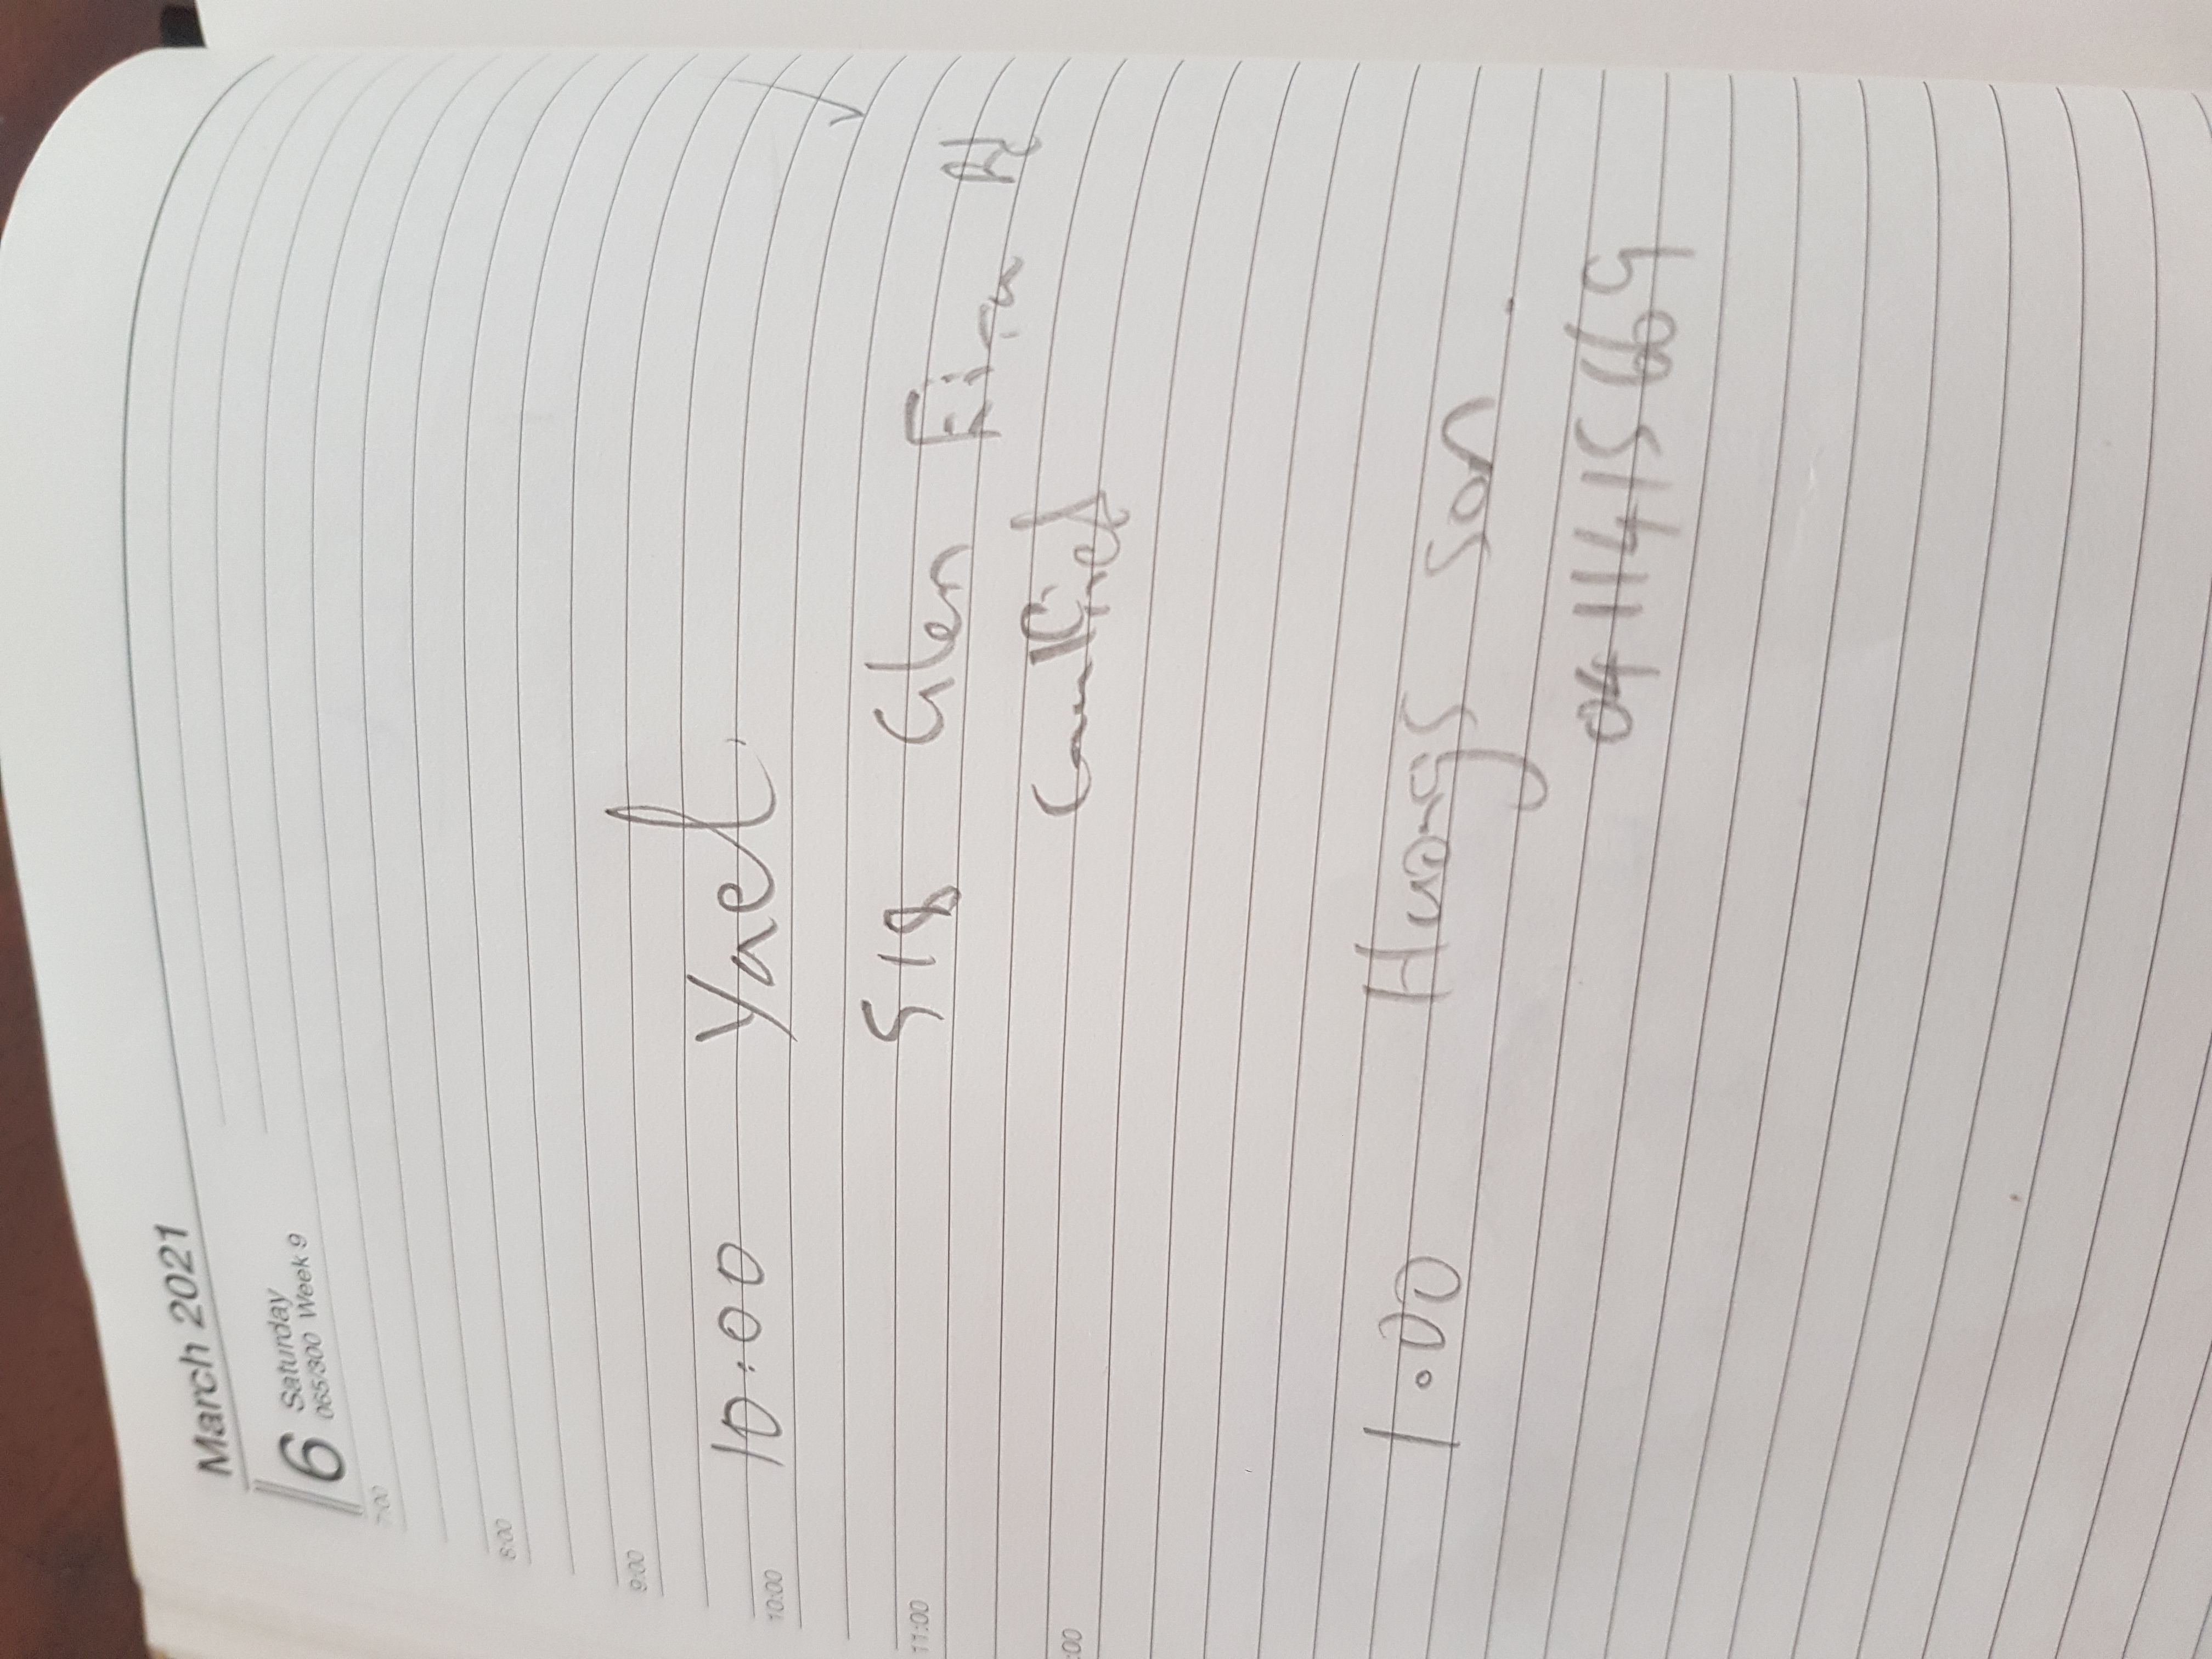 March 2021
6 Saturday
065/300 Week 9
7:00
8:00
9:00
10:00
10:00 Yael.
11:00
518 Glen Eira Rd
Caulfield
:00
1.00 Huongs son
0411415669